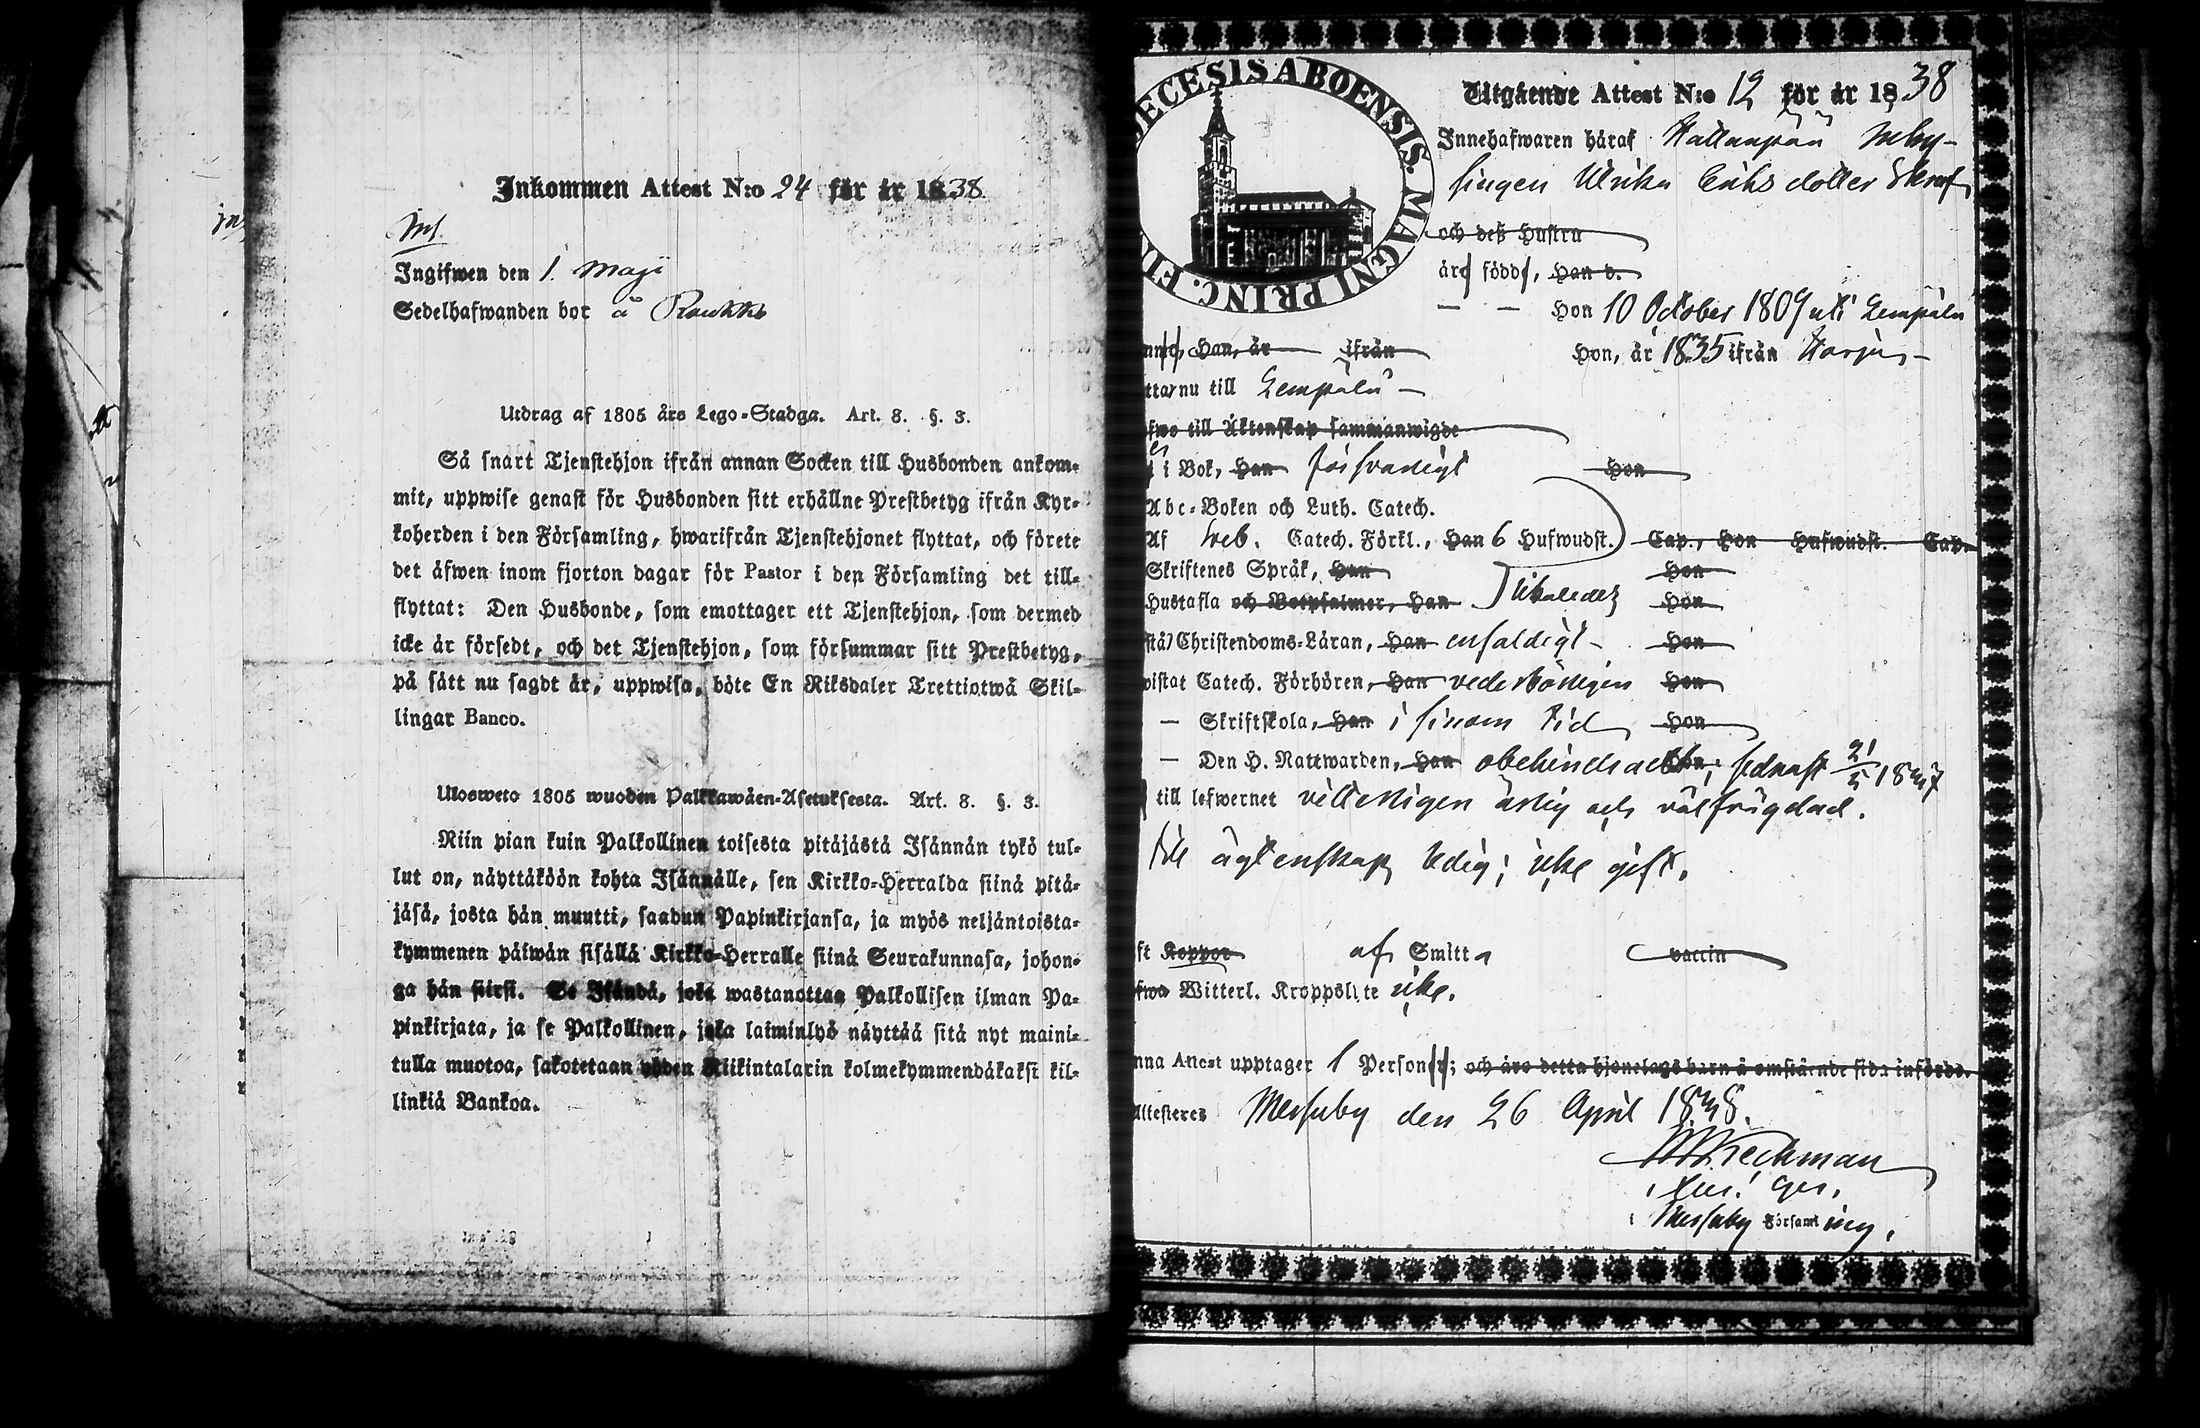 Inkommen Attest N:o 24 för år 1838
Ingifwen den 1. Maji
Sedelhafwanden bor å
Utdrag af 1805 års Lego-Stadga. Art. 8. §. 3.
Så snart Tjenstehjon ifrån annan Socken till Husbonden ankom-
mit, uppwise genast för Husbonden sitt erhållne Prestbetyg ifrån Kyr-
koherden i den Församling, hwarifrån Tjenstehjonet flyttat, och förete
det äfwen inom fjorton dagar för Pastor i den Församling det till-
flyttat: Den Husbonde, som emottager ett Tjenstehjon, som dermed
icke är försedt, och det Tjenstehjon, som försummar sitt Prestbetyg,
på sätt nu sagdt är, uppwisa, böte En Riksdaler Trettiotwå Skil-
lingar Banco.
Ulosweto 1805 wuoden Palkkawäen-Asetuksesta. Art. 8. §. 3.
Niin pian kuin Palkollinen toisesta pitäjästä Isännän tykö tul-
lut on, näyttäköön kohta Isännälle, sen Kirkko-Herralda siinä pitä-
jäsä, josta hän muutti, saadun Papinkirjansa, ja myös neljäntoista-
kymmenen päiwän sisällä Kirkko-Herralle siinä Seurakunnasa, johon-
ga hän siirsi. Se Isändä, joka wastanottaa Palkollisen ilman Pa-
pinkirjata, ja se Palkollinen, joka laiminlyö näyttää sitä nyt maini-
tulla muotoa, sakotetaan yhden Riikintalarin kolmekymmendäkaksi kil-
linkiä Bankoa.
ECESIS ABOENSIS. MAGNI PRINC. FI
Utgående Attest N:o 12 för år 1838
Innehafwaren häraf Hattanpää Inhy-
singen Ulrika Eriksdotter
och deß Hustru
äro född, Han d.
— — Hon 10 October 1809 uti Lempälä
Han, år ifrån Hon, år 1835 ifrån Harju
nu till Lempälä
till Äktenskap sammanwigde
i Bok, Han försvarligt Hon
Abc-Boken och Luth. Catech.
Af Sveb. Catech. Förkl., Han 6 Hufwudst. Cap., Hon Hufwudst. Cap.
Skriftenes Språk, Han Hon
Hustafla och Botpsalmer, Han likaledes Hon
Christendoms-Läran, Han enfaldigt Hon
Catech. Förhören, Han vederbörligen Hon
— Skriftskola, Han i sinom tid Hon
— Den H. Nattwarden, Han obehindrad Hon; sednast 21/5 1837
till lefwernet vitterligen ärlig och välfrägdad.
Till ägtenskap ledig; icke gift.
Koppor af Smitta vaccin
Witterl. Kroppslyte icke.
Attest upptager 1 Person; och äro detta hjonelags barn å omstående sida införde.
Messuby den 26 April 1838.
i Messuby Församling.